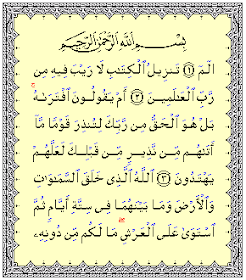 بِسْمِ ٱللَّهِ ٱلرَّحْمَٰنِ ٱلرَّحِيمِ
الٓمٓ ﴿١﴾ تَنزِيلُ ٱلْكِتَٰبِ لَا رَيْبَ فِيهِ مِن
رَّبِّ ٱلْعَٰلَمِينَ ﴿٢﴾ أَمْ يَقُولُونَ ٱفْتَرَىٰهُ ۚ
بَلْ هُوَ ٱلْحَقُّ مِن رَّبِّكَ لِتُنذِرَ قَوْمًا مَّآ
أَتَىٰهُم مِّن نَّذِيرٍ مِّن قَبْلِكَ لَعَلَّهُمْ
يَهْتَدُونَ ﴿٣﴾ ٱللَّهُ ٱلَّذِى خَلَقَ ٱلسَّمَٰوَٰتِ
وَٱلْأَرْضَ وَمَا بَيْنَهُمَا فِى سِتَّةِ أَيَّامٍ ثُمَّ
ٱسْتَوَىٰ عَلَى ٱلْعَرْشِ ۖ مَا لَكُم مِّن دُونِهِۦ